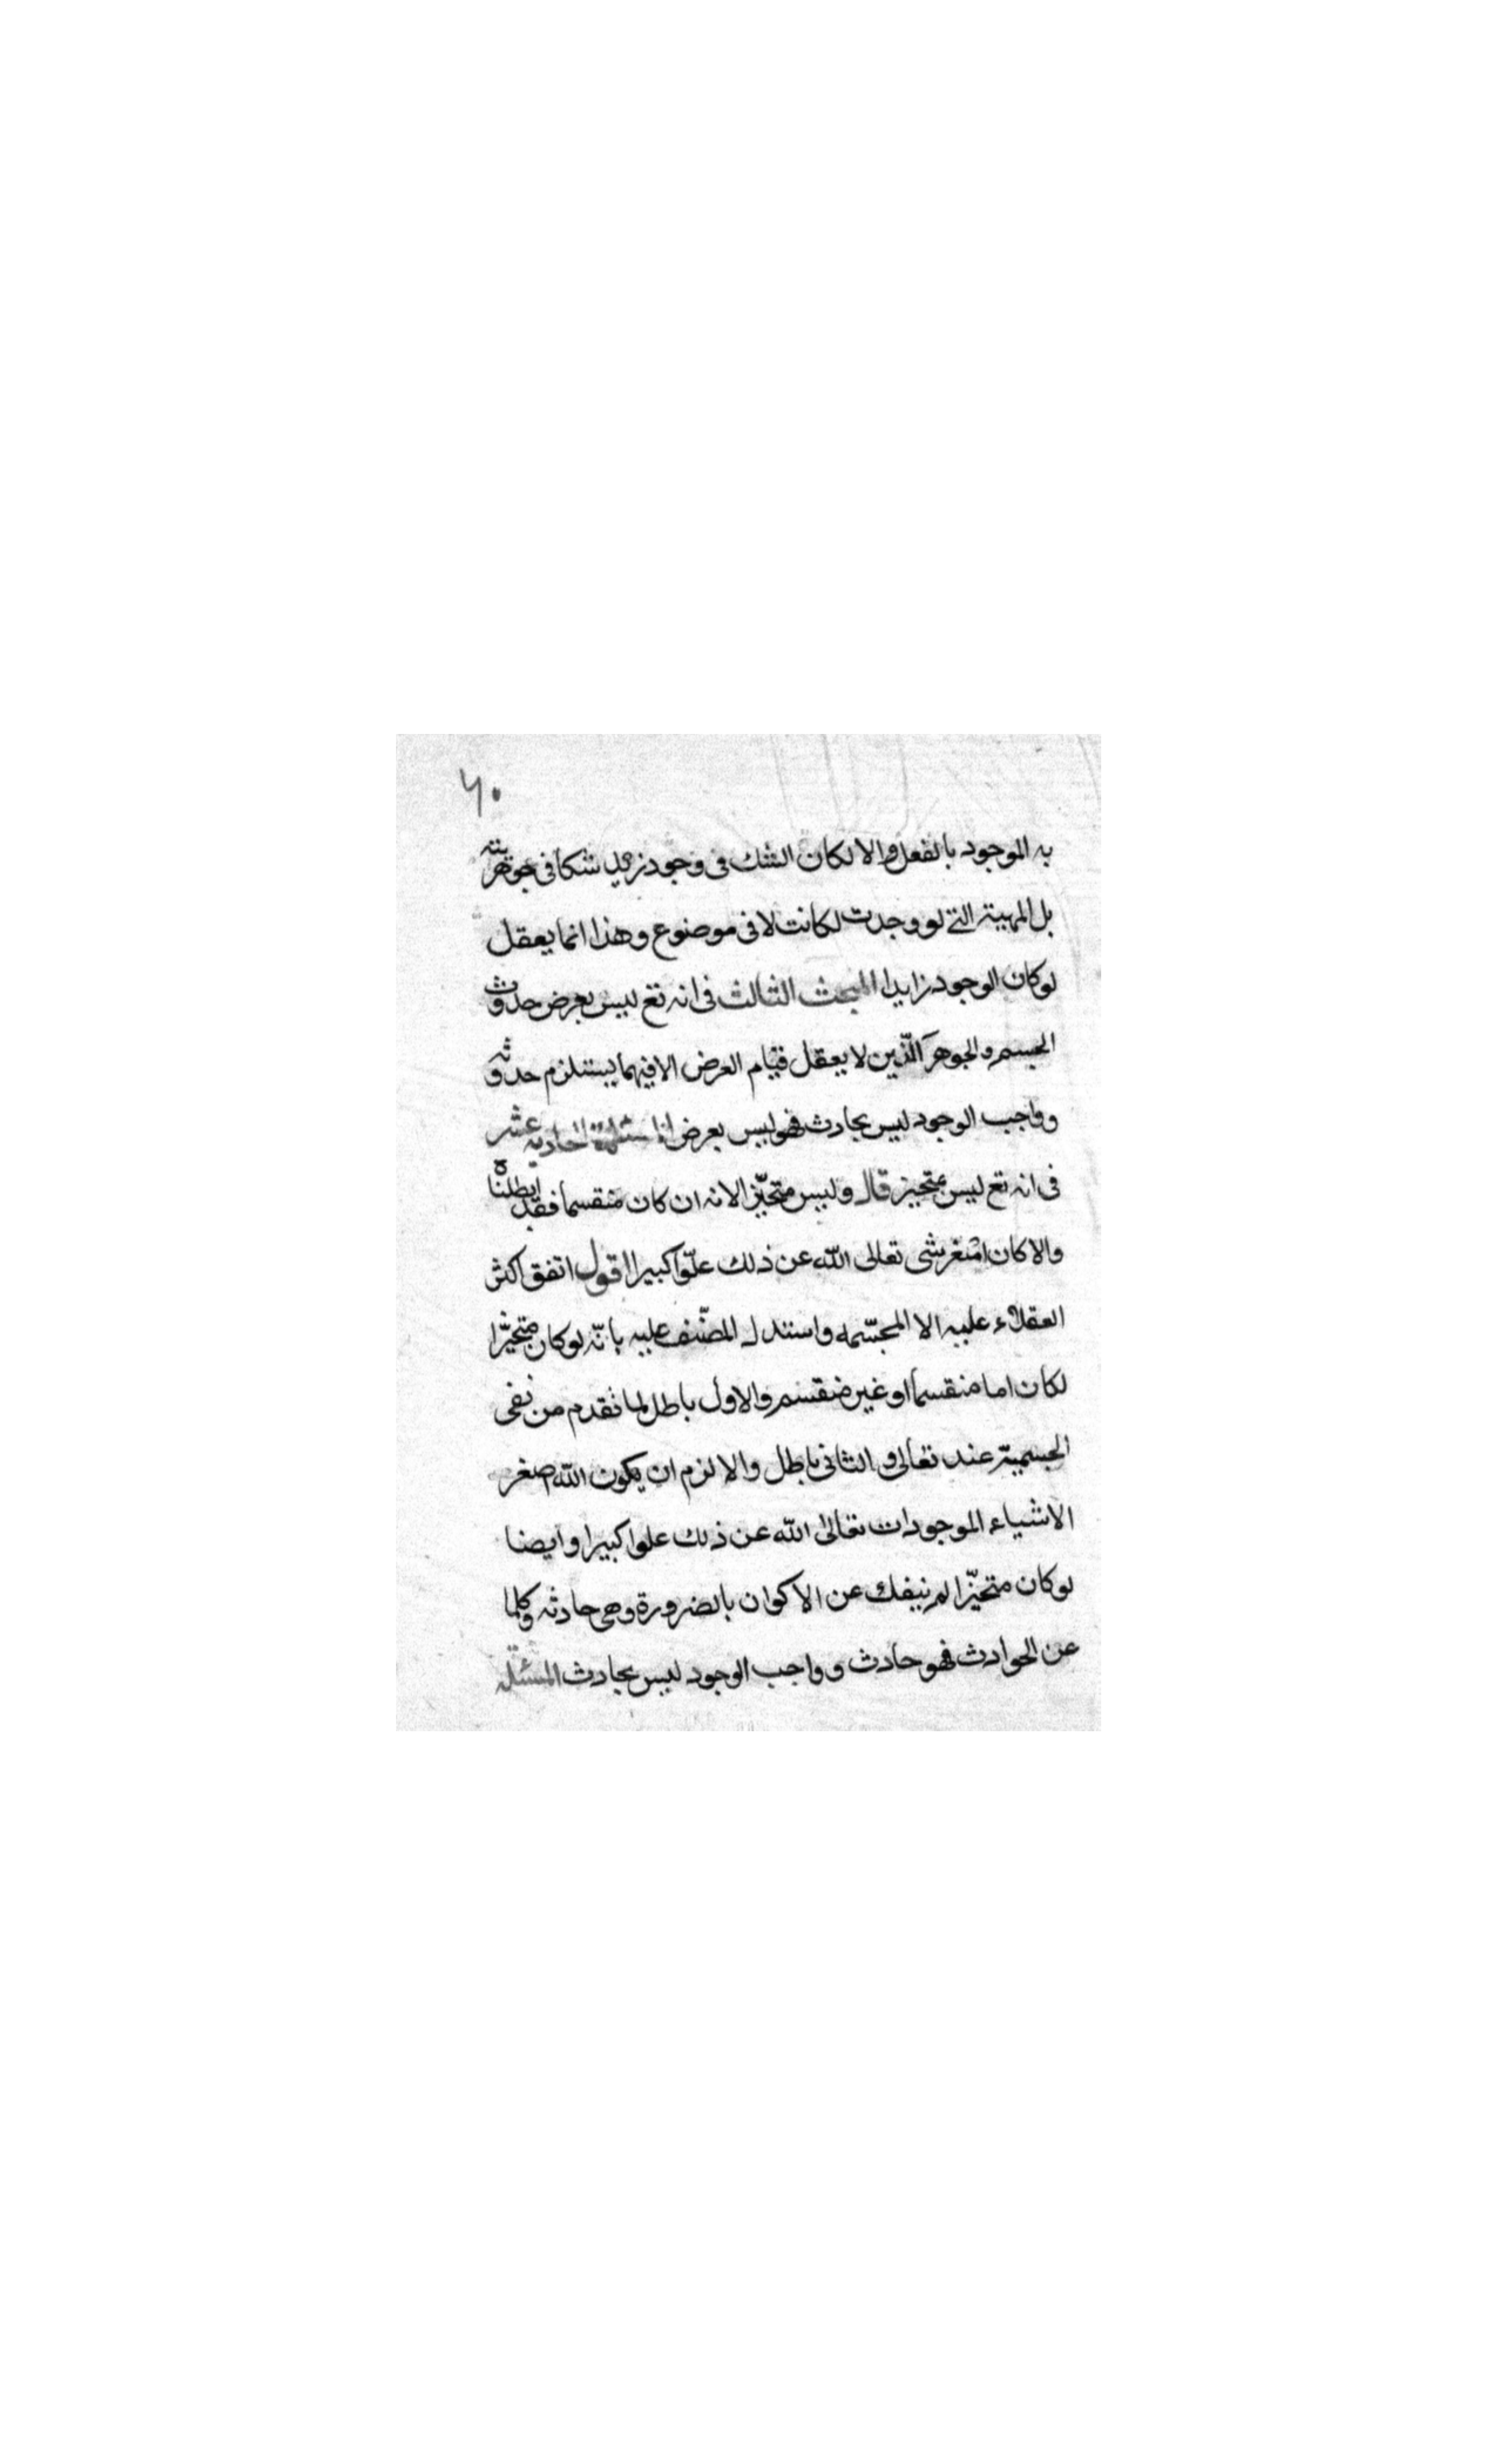 ٦٠
به الموجود بالفعل والا لكان الشك فى وجود زيد شكا فى جوهريته
بل المهية التى لو وجدت لكانت لا فى موضوع وهذا انما يعقل
لو كان الوجود زايدا المبحث الثالث فى انه تع ليس بعرض حدوث
الجسم والجوهر الّذين لا يعقل قيام العرض الا فيهما يستلزم حدوثه
وواجب الوجود ليس بحادث فهو ليس بعرض المسئلة الحادية عشر
فى انه تع ليس بمتحيز قال وليس متحيّزا لانه ان كان منقسما فقد ابطلناه
والا كان اصغر شى تعالى اللّه عن ذلك علوّا كبيرا اقول اتفق اكثر
العقلاء عليه الا المجسّمه واستدل المصّنف عليه بانّه لو كان متحيّزا
لكان اما منقسما او غير منقسم والاول باطل لما تقدم من نفى
الجسمية عنه تعالى والثانى باطل والا لزم ان يكون اللّه اصغر
الاشياء الموجودات تعالى اللّه عن ذلك علوا كبيرا وايضا
لو كان متحيّزا لم نيفك عن الاكوان بالضرورة وهى حادثه وكلما
عن الحوادث فهو حادث وواجب الوجود ليس بحادث المسئلة